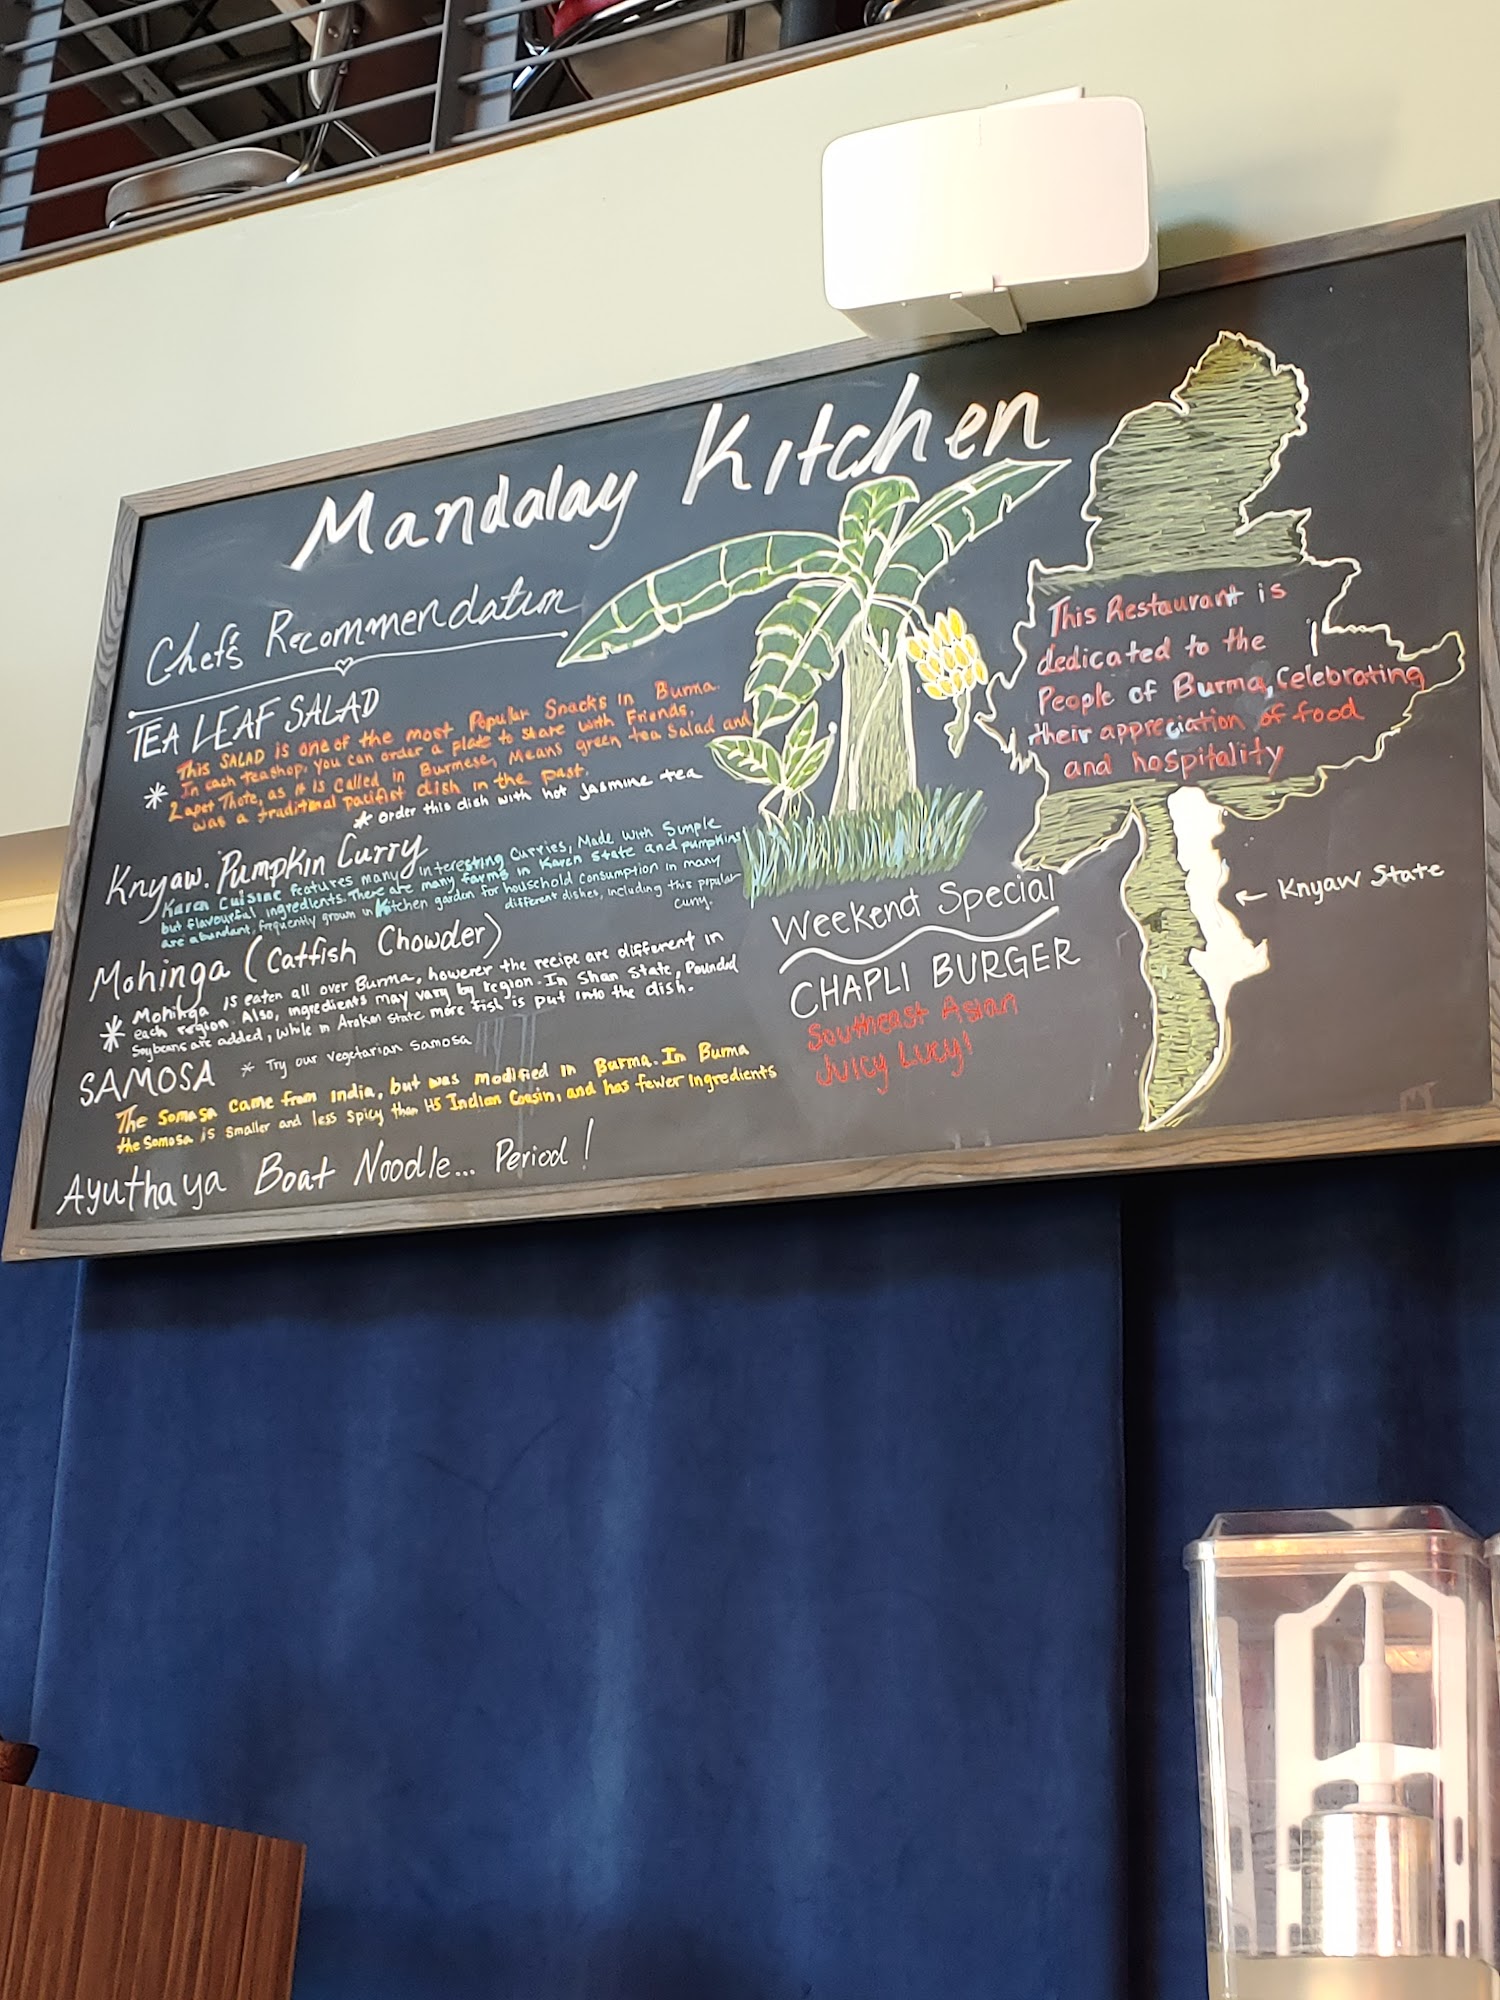 Mandalay Kitchen
Chef's Recommendation
TEA LEAF SALAD
This SALAD is one of the most Popular Snacks in Burma.
In each teashop, you can order a plate to share with Friends.
Lapet Thote, as it is Called in Burmese, Means green tea Salad and
was a traditinal pacifist dish in the past.
* Order this dish with hot Jasmine tea
Knyaw. Pumpkin Curry
Karen Cuisine features many Interesting Curries, Made With Simple
but flavourful ingredients. There are many farms in Karen State and pumpkins
are abundant, frequently grown in Kitchen garden for household Consumption in many
different dishes, including this popular
curry.
Mohinga (Catfish Chowder)
* Mohinga is eaten all over Burma, however the recipe are different in
each region. Also, ingredients may vary by region. In Shan State, Pounded
Soybeans are added, while in Arakan state more fish is put into the dish.
SAMOSA * Try our vegetarian Samosa
The Somasa came from India, but was modified in Burma. In Burma
the Samosa is smaller and less spicy than its Indian Cousin, and has fewer Ingredients
Ayuthaya Boat Noodle... Period!
Weekend Special
CHAPLI BURGER
Southeast Asian
Juicy Lucy!
This Restaurant is
dedicated to the
People of Burma, Celebrating
their appreciation of food
and hospitality
← Knyaw State
MT